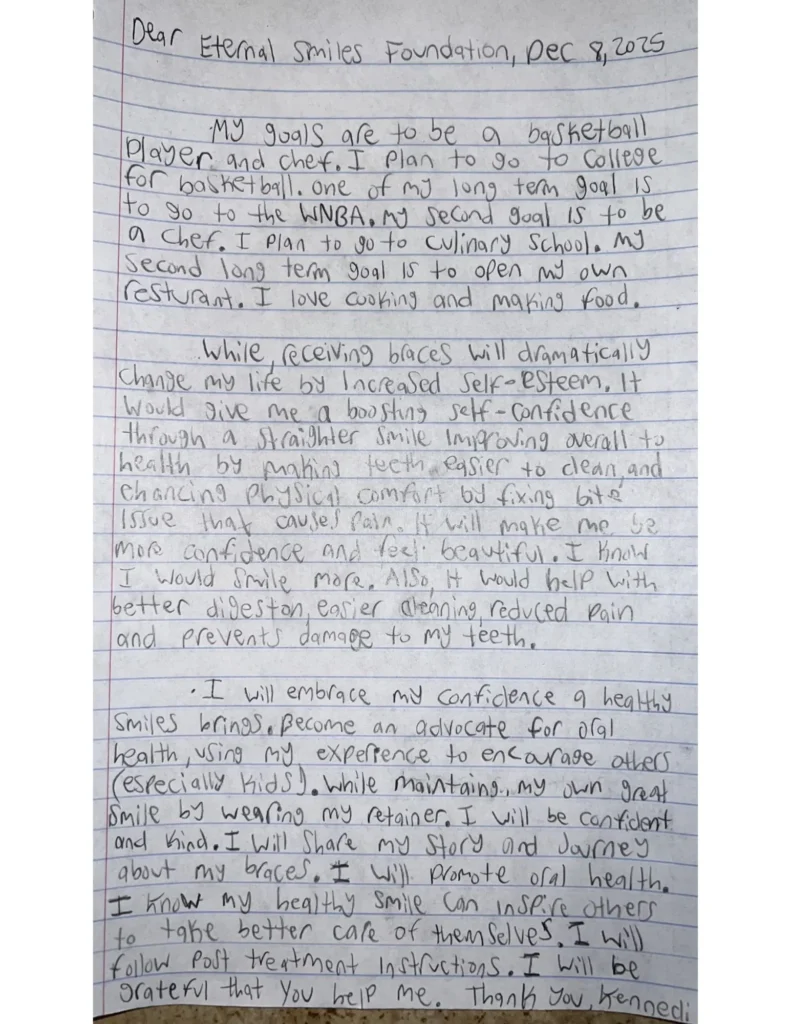 Dear Eternal Smiles Foundation, Dec 8, 2025
My goals are to be a basketball
player and chef. I plan to go to college
for basketball. one of my long term goal is
to go to the WNBA. My second goal is to be
a chef. I plan to go to culinary school. My
second long term goal is to open my own
resturant. I love cooking and making food.
While, receiving braces will dramatically
change my life by increased self-esteem. It
would give me a boosting self-confidence
through a straighter smile improving overall to
health by making teeth easier to clean, and
enhancing physical comfort by fixing bite
issue that causes pain. It will make me be
more confidence and feel beautiful. I know
I would smile more. Also, it would help with
better digeston, easier cleaning, reduced pain
and prevents damage to my teeth.
. I will embrace my confidence a healthy
smiles brings. Become an advocate for oral
health, using my experience to encourage others
(especially kids). While maintaing, my own great
smile by wearing my retainer. I will be confident
and kind. I will share my story and Journey
about my braces. I will promote oral health.
I know my healthy smile can inspire others
to take better care of themselves. I will
follow post treatment instructions. I will be
grateful that you help me. Thank you, Kennedi